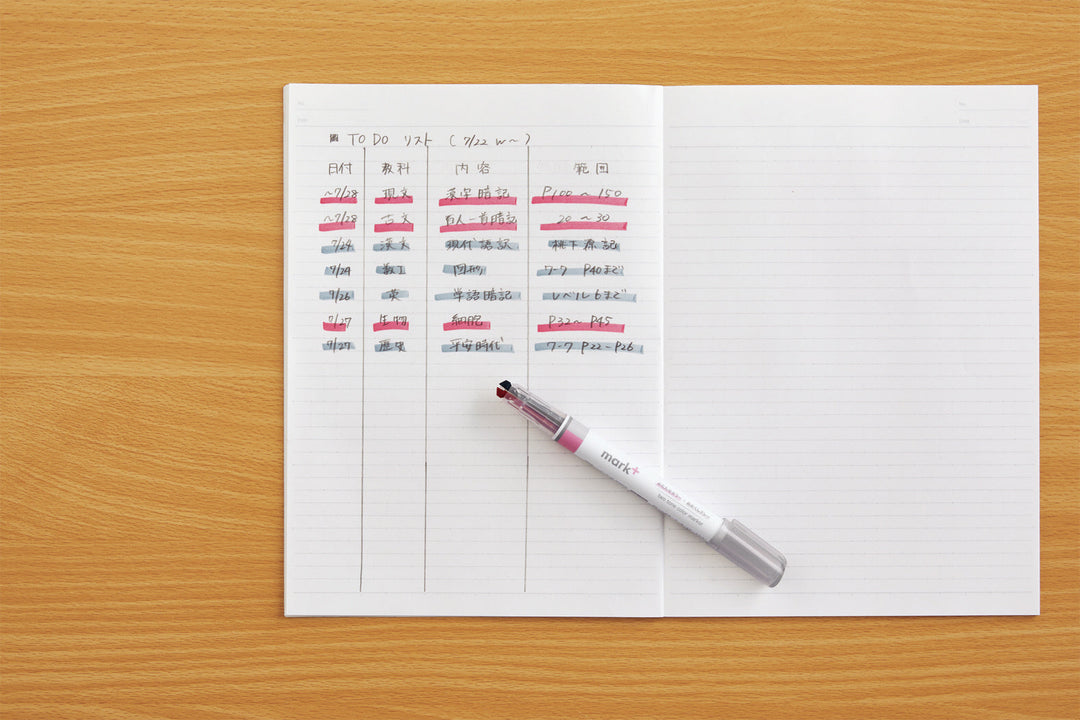 TO DO リスト (7/22 w〜)
日付 教科 内容 範囲
〜7/28 現文 漢字暗記 P100〜150
〜7/28 古文 百人一首暗記 20〜30
7/24 漢文 現代語訳 桃下源記
7/24 数I 図形 ワーク P40まで
7/26 英 単語暗記 レベル6まで
7/27 生物 細胞 P32〜P45
7/27 歴史 平安時代 ワーク P22-P26
mark+
two tone color marker